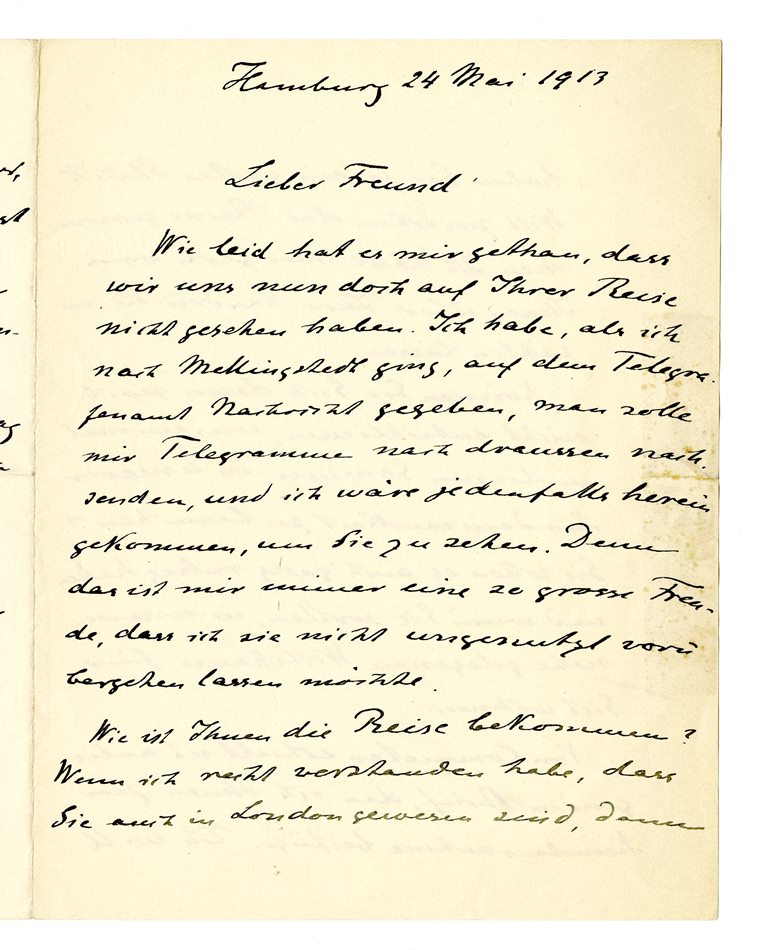 Hamburg 24 Mai 1913
Lieber Freund
Wie leid hat es mir gethan, dass
wir uns nun doch auf Ihrer Reise
nicht gesehen haben. Ich habe, als ich
nach Mellingstedt ging, auf dem Telegra-
fenamt Nachricht gegeben, man solle
mir Telegramme nach draussen nach-
senden, und ich wäre jedenfalls herein
gekommen, um Sie zu sehen. Denn
das ist mir immer eine so grosse Freu-
de, dass ich sie nicht ungenutzt vorü
bergehen lassen möchte.
Wie ist Ihnen die Reise bekommen?
Wenn ich recht verstanden habe, dass
Sie auch in London gewesen sind, dann